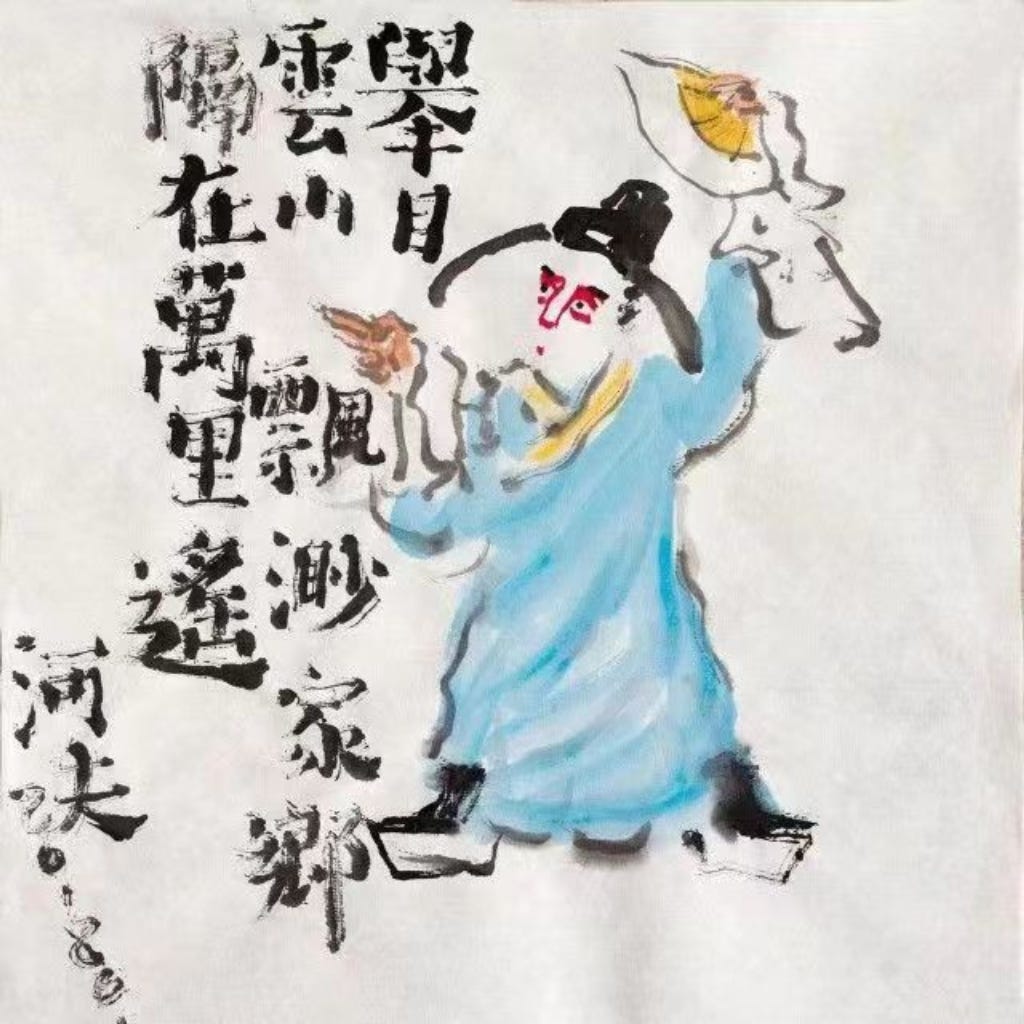 舉目
雲山飄渺家鄉
隔在萬里遙
河夫